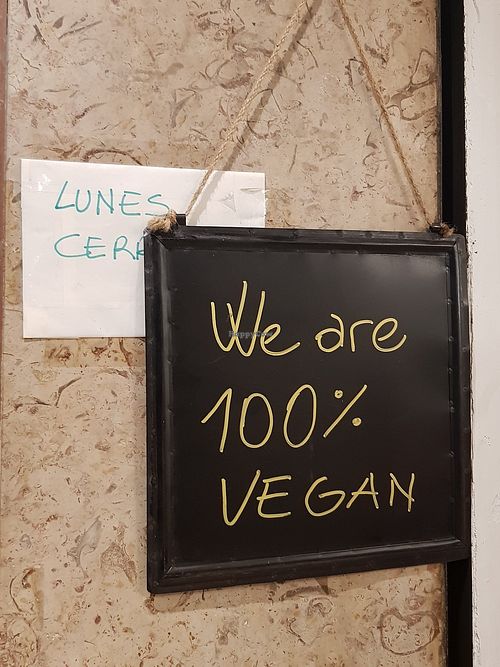 LUNES
We are
100%
VEGAN